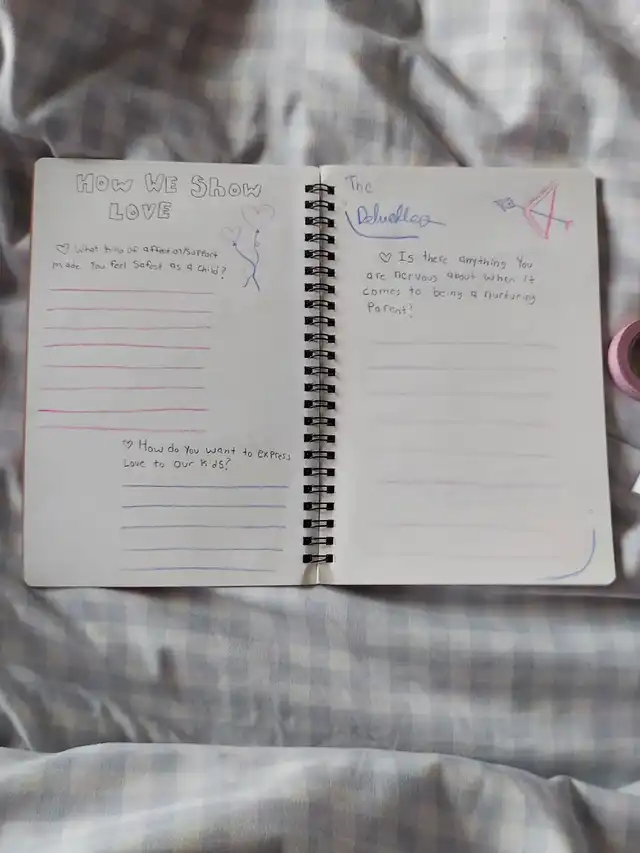 HOW WE SHOW
LOVE
♡ What kind of affection/support
made you feel safest as a child?
♡ How do you want to express
Love to our kids?
The
♡ Is there anything you
are nervous about when it
comes to being a nurturing
Parent?